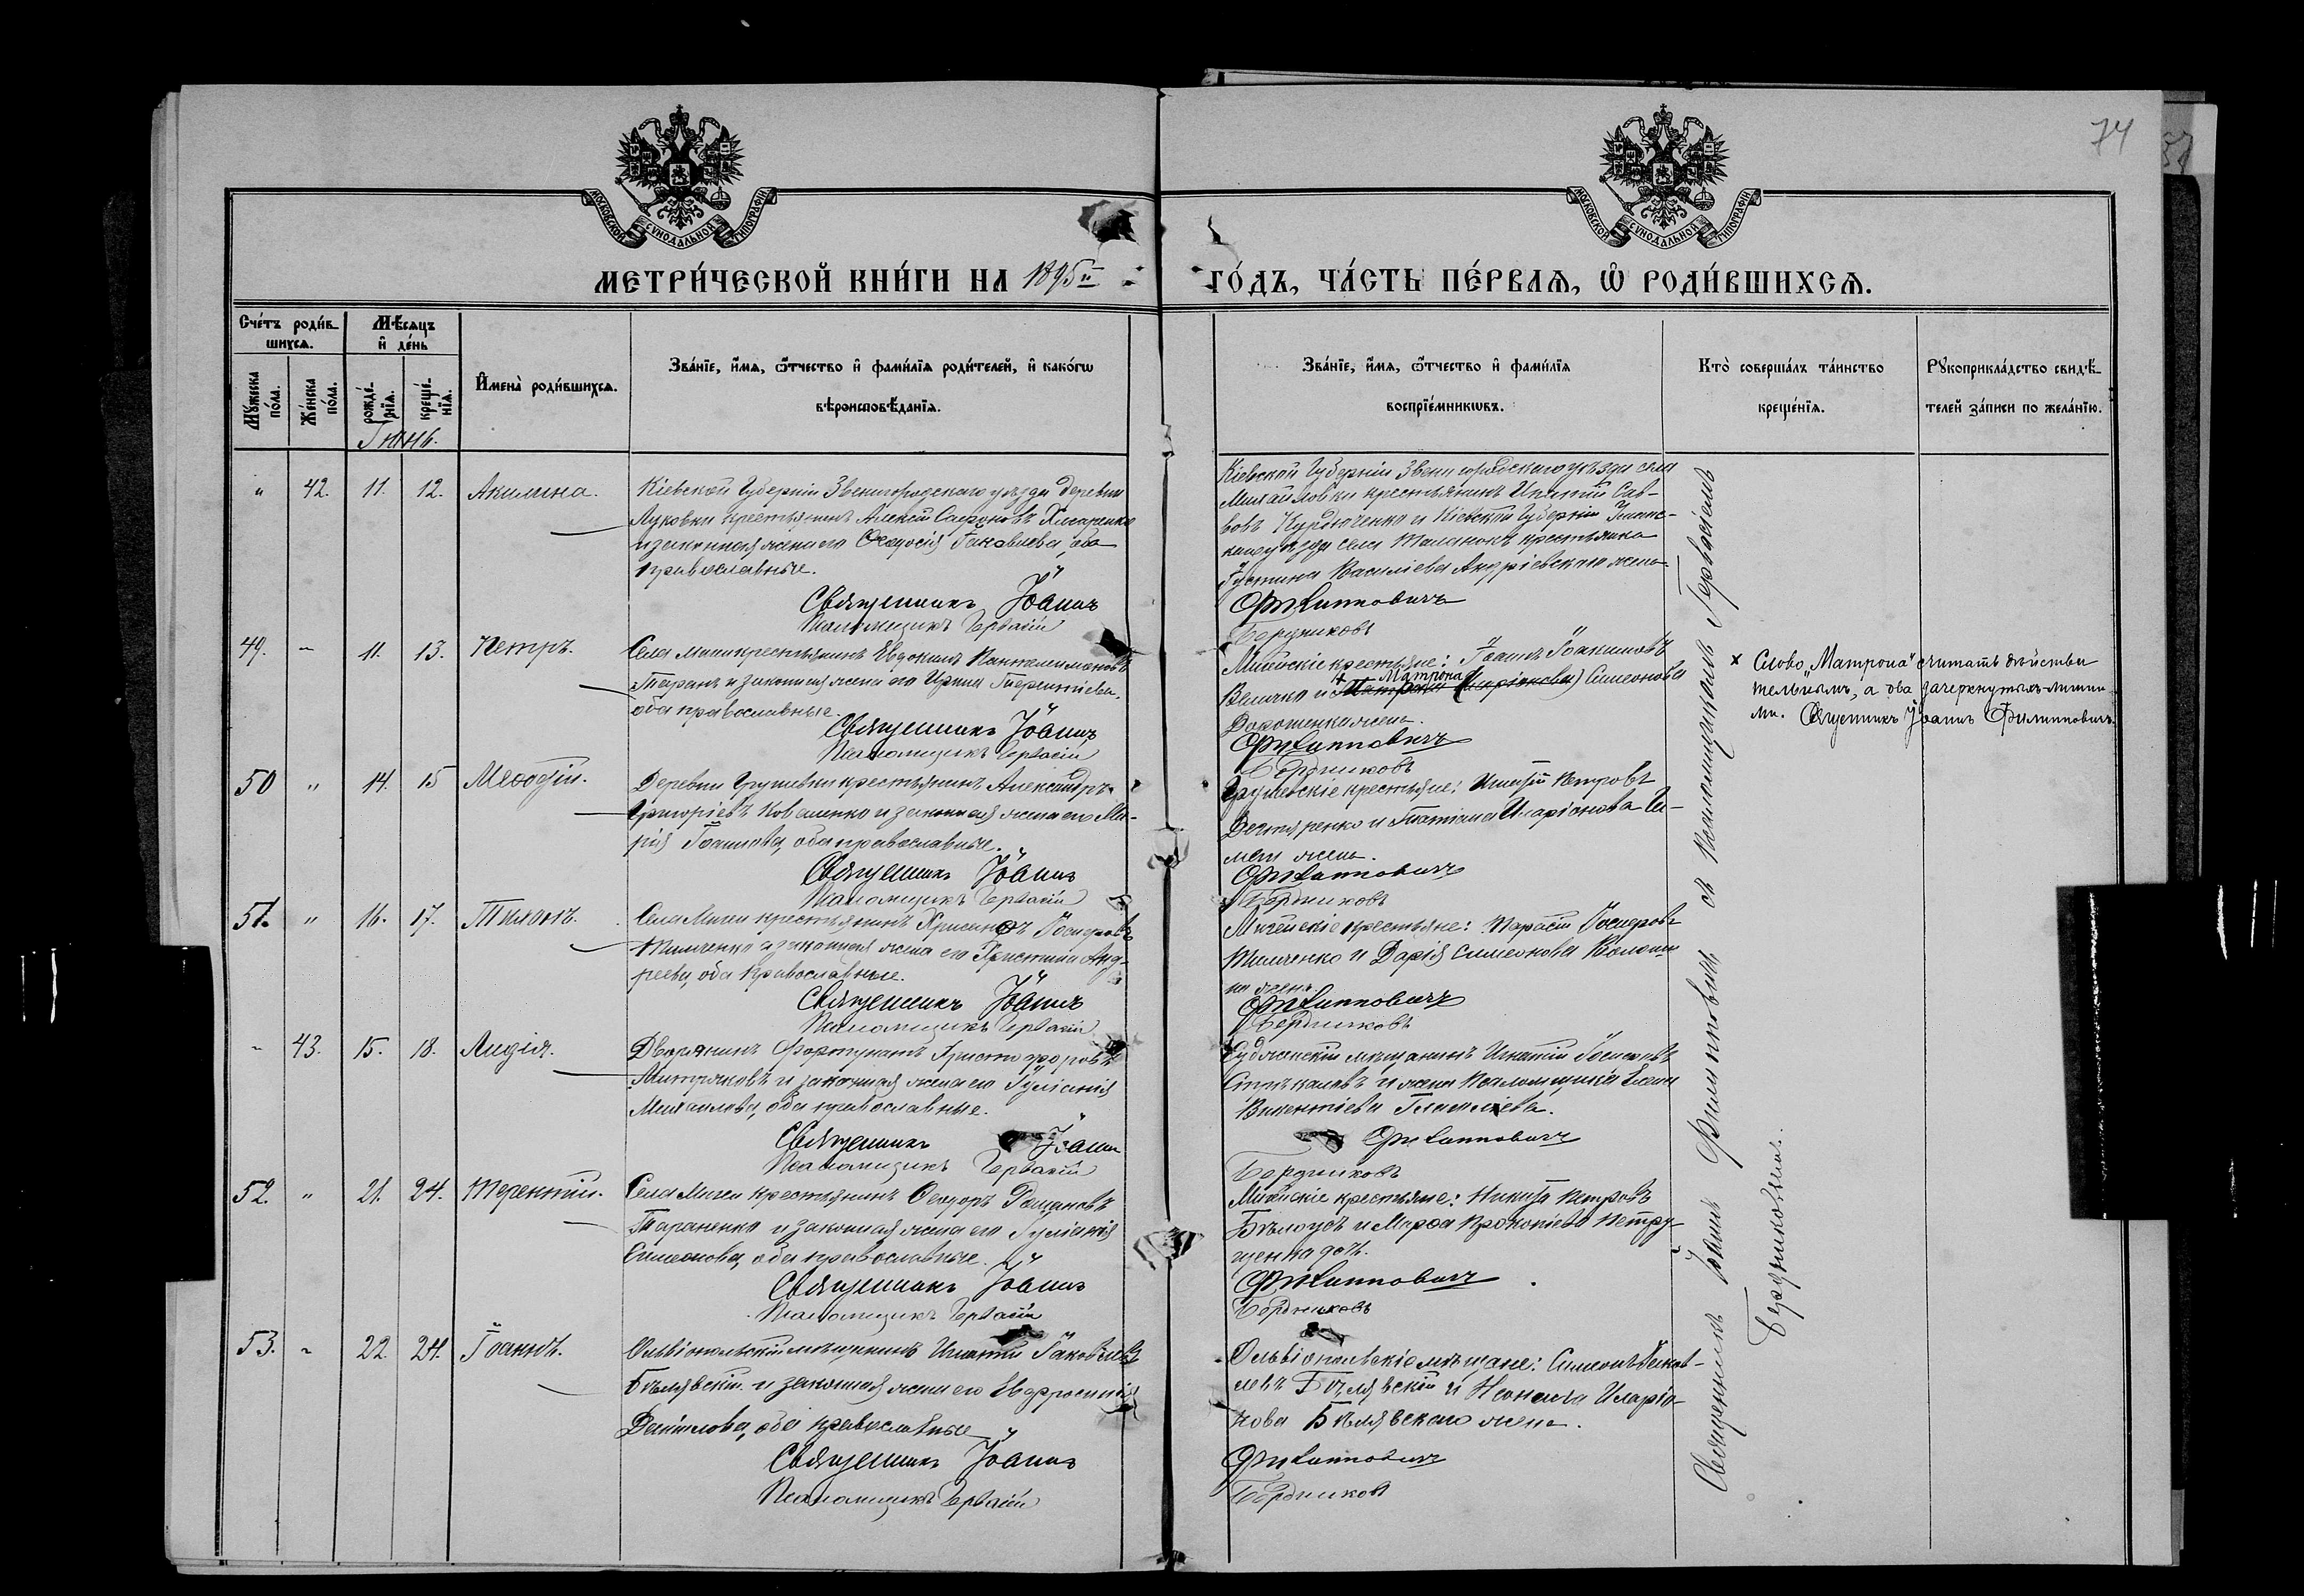 74
МОСКОВСКОЙ СѴНОДАЛЬНОЙ ТИПОГРАФІИ
МОСКОВСКОЙ СѴНОДАЛЬНОЙ ТИПОГРАФІИ
МЕТРИ́ЧЕСКОЙ КНИ́ГИ НА 1895й ГО́ДЪ, ЧА́СТЬ ПЕ́РВАѦ, Ѡ РОДИ́ВШИХСѦ.
Сче́тъ роди́в-
шихсѧ.
Мꙋ́жеска по́ла.
Же́нска по́ла.
Мѣ́сѧцъ и де́нь
рожде́нїѧ.
креще́нїѧ.
Имена̀ роди́вшихсѧ.
Зва́нїе, и́мѧ, ѻ́тчество и фами́лїѧ роди́телей, и како́гѡ
вѣроисповѣ́данїѧ.
Зва́нїе, и́мѧ, ѻ́тчество и фами́лїѧ
воспрїе́мникѡвъ.
Кто̀ соверша́лъ та́инство
креще́нїѧ.
Рꙋкоприкла́дство свидѣ́-
телей за́писи по жела́нїю.
Іюнь.
" 42. 11. 12. Акилина.
Кіевской Губерніи Звенигородскаго уѣзда деревни
крестьянинъ Алексій
и законная жена его Ѳеодосія Іаковлева, оба
православные.
Священникъ Іоаннъ
Псаломщикъ Гервасій
Кіевской Губерніи Звенигородскаго уѣзда села
Михайловки крестьянинъ Игнатій Сав-
вовъ и Кіевской Губерніи Уман-
скаго уѣзда села крестьянка
Іустина Василіева Андріевскаго жена.
Филипповичъ
Бердниковъ
49. " 11. 13. Петръ.
Села Мигеи крестьянинъ Евдокимъ Пантелеимоновъ
Таранъ и законная жена его Ирина Терентіева,
оба православные.
Священникъ Іоаннъ
Псаломщикъ Гервасій
Мигейскіе крестьяне: Іоаннъ Іоакимовъ
Величко и Матрона Симеонова
жена.
Филипповичъ
Бердниковъ
х Слово "Матрона" считать дѣйстви
тельнымъ, а два зачеркнутыхъ лишни
ми. Священникъ Іоаннъ Филипповичъ.
50 " 14. 15 Меѳодій.
Деревни Грушевки крестьянинъ Александръ
Григоріевъ Коваленко и законная жена его Ма-
рія Іоаннова, оба православные.
Священникъ Іоаннъ
Псаломщикъ Гервасій
Грушевскіе крестьяне: Игнатій Петровъ
Дегтяренко и Татіана Иларіонова
жена.
Филипповичъ
Бердниковъ
51. " 16. 17. Тихонъ.
Села Мигеи крестьянинъ Хрисанѳъ Іосифовъ
Тимченко и законная жена его Христина Анд-
реева, оба православные.
Священникъ Іоаннъ
Псаломщикъ Гервасій
Мигейскіе крестьяне: Тарасій Іосифовъ
Тимченко и Дарія Симеонова
жена.
Филипповичъ
Бердниковъ
" 43. 15. 18. Лидія.
Дворянинъ Фортунатъ Христофоровъ
и законная жена его Іуліанія
Михаилова, оба православные.
Священникъ Іоаннъ
Псаломщикъ Гервасій
мѣщанинъ Игнатій
и жена Псаломщика Елена
Викентіева
Филипповичъ
Бердниковъ
52. " 21. 24. Терентій.
Села Мигеи крестьянинъ Ѳеодоръ Романовъ
Тараненко и законная жена его Іуліанія
Симеонова, оба православные.
Священникъ Іоаннъ
Псаломщикъ Гервасій
Мигейскіе крестьяне: Никита Петровъ
Бѣлоусъ и Марѳа Прокопіева Петру-
щенка дочь.
Филипповичъ
Бердниковъ
53. " 22. 24. Іоаннъ.
Ольвіопольскій мѣщанинъ Игнатій Іаковлевъ
Бѣлявскій и законная жена его Евфросинія
Даніилова, оба православные
Священникъ Іоаннъ
Псаломщикъ Гервасій
Ольвіопольскіе мѣщане: Симеонъ Іаков-
левъ Бѣлявскій и Неонила Иларіо-
нова Бѣлявскаго жена.
Филипповичъ
Бердниковъ
Священникъ Іоаннъ Филипповичъ съ Псаломщикомъ Гервасіемъ
Бердниковымъ.